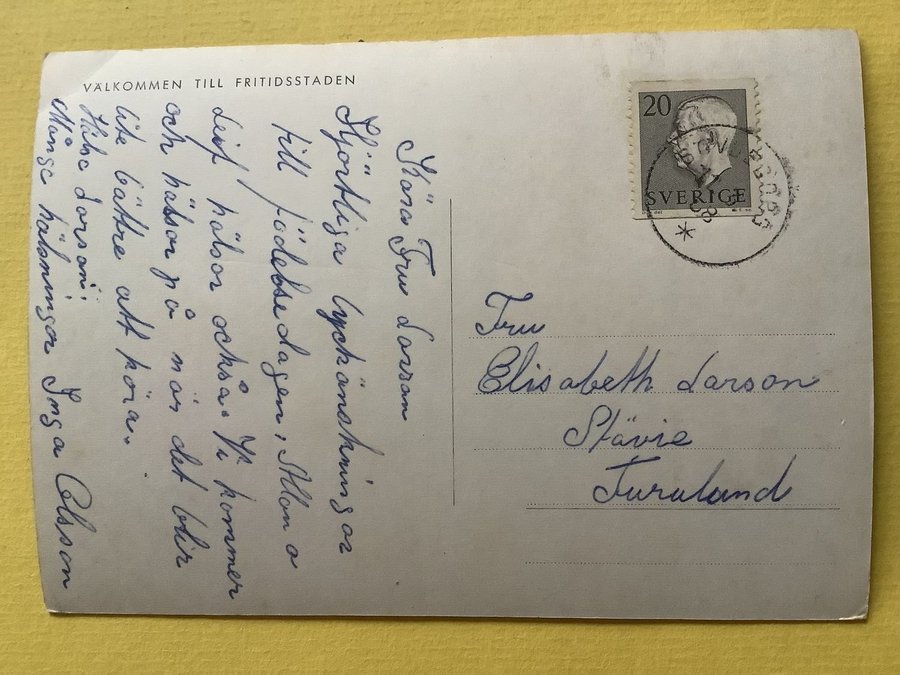 VÄLKOMMEN TILL FRITIDSSTADEN
Kära Fru Larson
Hjärtliga lyckönskningar
till födelsedagen, Allan o
Leif hälsar också. Vi kommer
och hälsar på när det blir
lite bättre att köra.
Hälsa Larson!
Många hälsningar Inga Olsson
20
SVERIGE
Fru
Elisabeth Larson
Stävie
Furulund